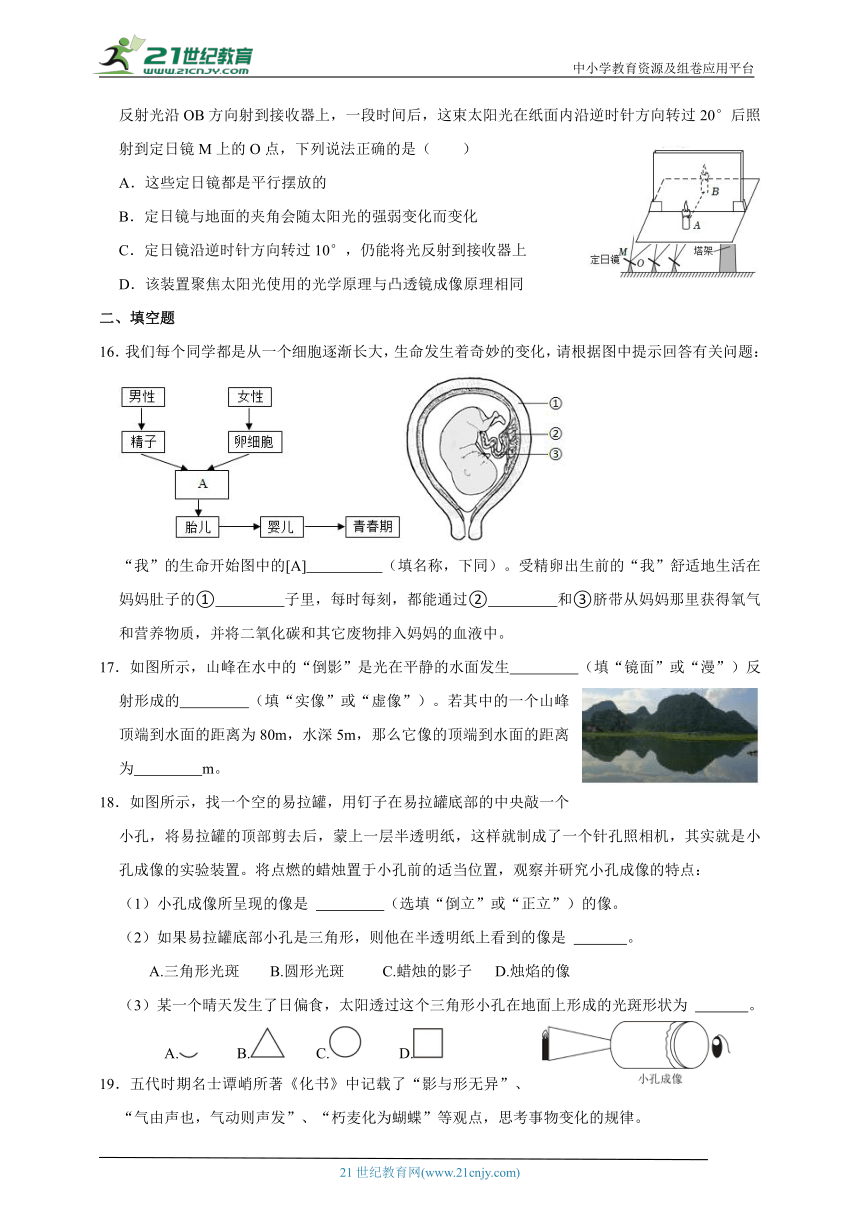 21世纪教育
www.21cnjy.com
中小学教育资源及组卷应用平台
反射光沿OB方向射到接收器上，一段时间后，这束太阳光在纸面内沿逆时针方向转过20°后照
射到定日镜M上的O点，下列说法正确的是（　　）
A．这些定日镜都是平行摆放的
B．定日镜与地面的夹角会随太阳光的强弱变化而变化
C．定日镜沿逆时针方向转过10°，仍能将光反射到接收器上
D．该装置聚焦太阳光使用的光学原理与凸透镜成像原理相同
B
A
定日镜
M
O
塔架
二、填空题
16．我们每个同学都是从一个细胞逐渐长大，生命发生着奇妙的变化，请根据图中提示回答有关问题：
男性
女性
精子
卵细胞
A
胎儿
婴儿
青春期
①
②
③
“我”的生命开始图中的[A]__________（填名称，下同）。受精卵出生前的“我”舒适地生活在
妈妈肚子的①_________子里，每时每刻，都能通过②_________和③脐带从妈妈那里获得氧气
和营养物质，并将二氧化碳和其它废物排入妈妈的血液中。
17．如图所示，山峰在水中的“倒影”是光在平静的水面发生_________（填“镜面”或“漫”）反
射形成的_________（填“实像”或“虚像”）。若其中的一个山峰
顶端到水面的距离为80m，水深5m，那么它像的顶端到水面的距离
为_________m。
18．如图所示，找一个空的易拉罐，用钉子在易拉罐底部的中央敲一个
小孔，将易拉罐的顶部剪去后，蒙上一层半透明纸，这样就制成了一个针孔照相机，其实就是小
孔成像的实验装置。将点燃的蜡烛置于小孔前的适当位置，观察并研究小孔成像的特点：
（1）小孔成像所呈现的像是 _________（选填“倒立”或“正立”）的像。
（2）如果易拉罐底部小孔是三角形，则他在半透明纸上看到的像是 _______。
A.三角形光斑 B.圆形光斑 C.蜡烛的影子 D.烛焰的像
（3）某一个晴天发生了日偏食，太阳透过这个三角形小孔在地面上形成的光斑形状为 _______。
A. B. C. D.
小孔成像
19．五代时期名士谭峭所著《化书》中记载了“影与形无异”、
“气由声也，气动则声发”、“朽麦化为蝴蝶”等观点，思考事物变化的规律。
21世纪教育网(www.21cnjy.com)